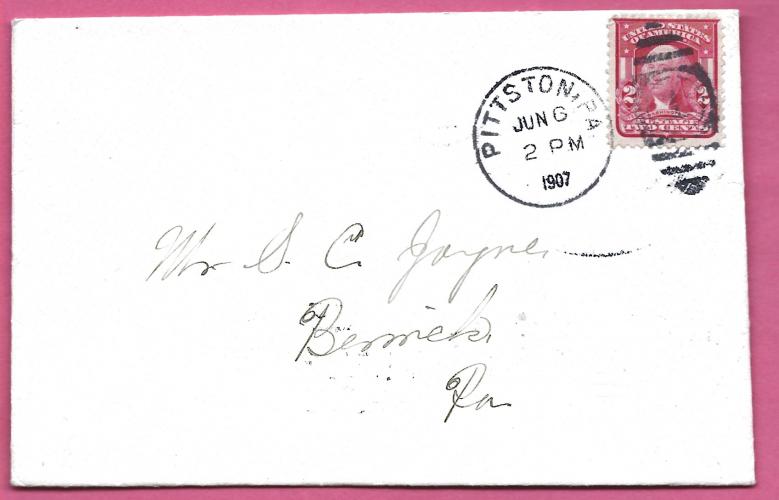 UNITED STATES
OF AMERICA
2 2
POSTAGE
TWO CENTS
PITTSTON, PA.
JUN 6
2 PM
1907
Mr S. C. Jayne
Berwick
Pa